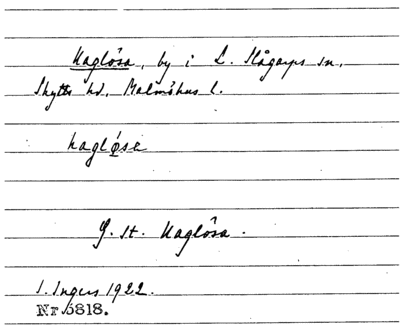 Haglösa, by i L. Slågarps sn,
Skytts hd, Malmöhus l.
hagløse
G. st. Haglösa.
I. Ingers 1922.
Nr 5818.